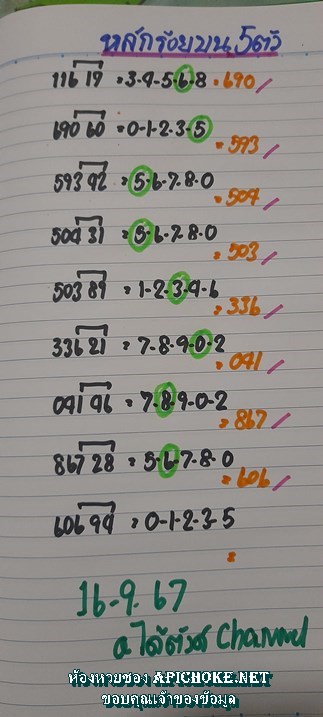 หลักร้อยบน 5ตัว
116 19 = 3-4-5-6-8 = 690 /
690 60 = 0-1-2-3-5
= 593 /
593 42 = 5-6-7-8-0
= 504 /
504 31 = 5-6-7-8-0
= 503 /
503 89 = 1-2-3-4-6
= 336 /
336 21 = 7-8-9-0-2
= 041 /
041 46 = 7-8-9-0-2
= 867 /
867 28 = 5-6-7-8-0
= 606 /
606 94 = 0-1-2-3-5
=
16-9-67
Channel
ห้องหวยซอง APICHOKE.NET
ขอบคุณเจ้าของข้อมูล